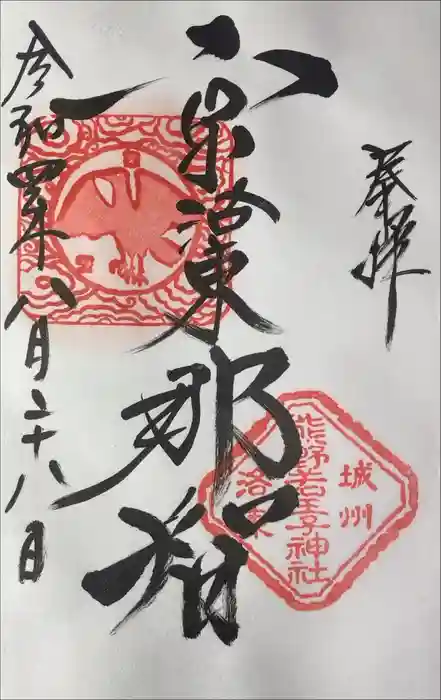 奉拝
京洛東那智
城州
熊野若王子神社
洛東
令和四年八月二十八日